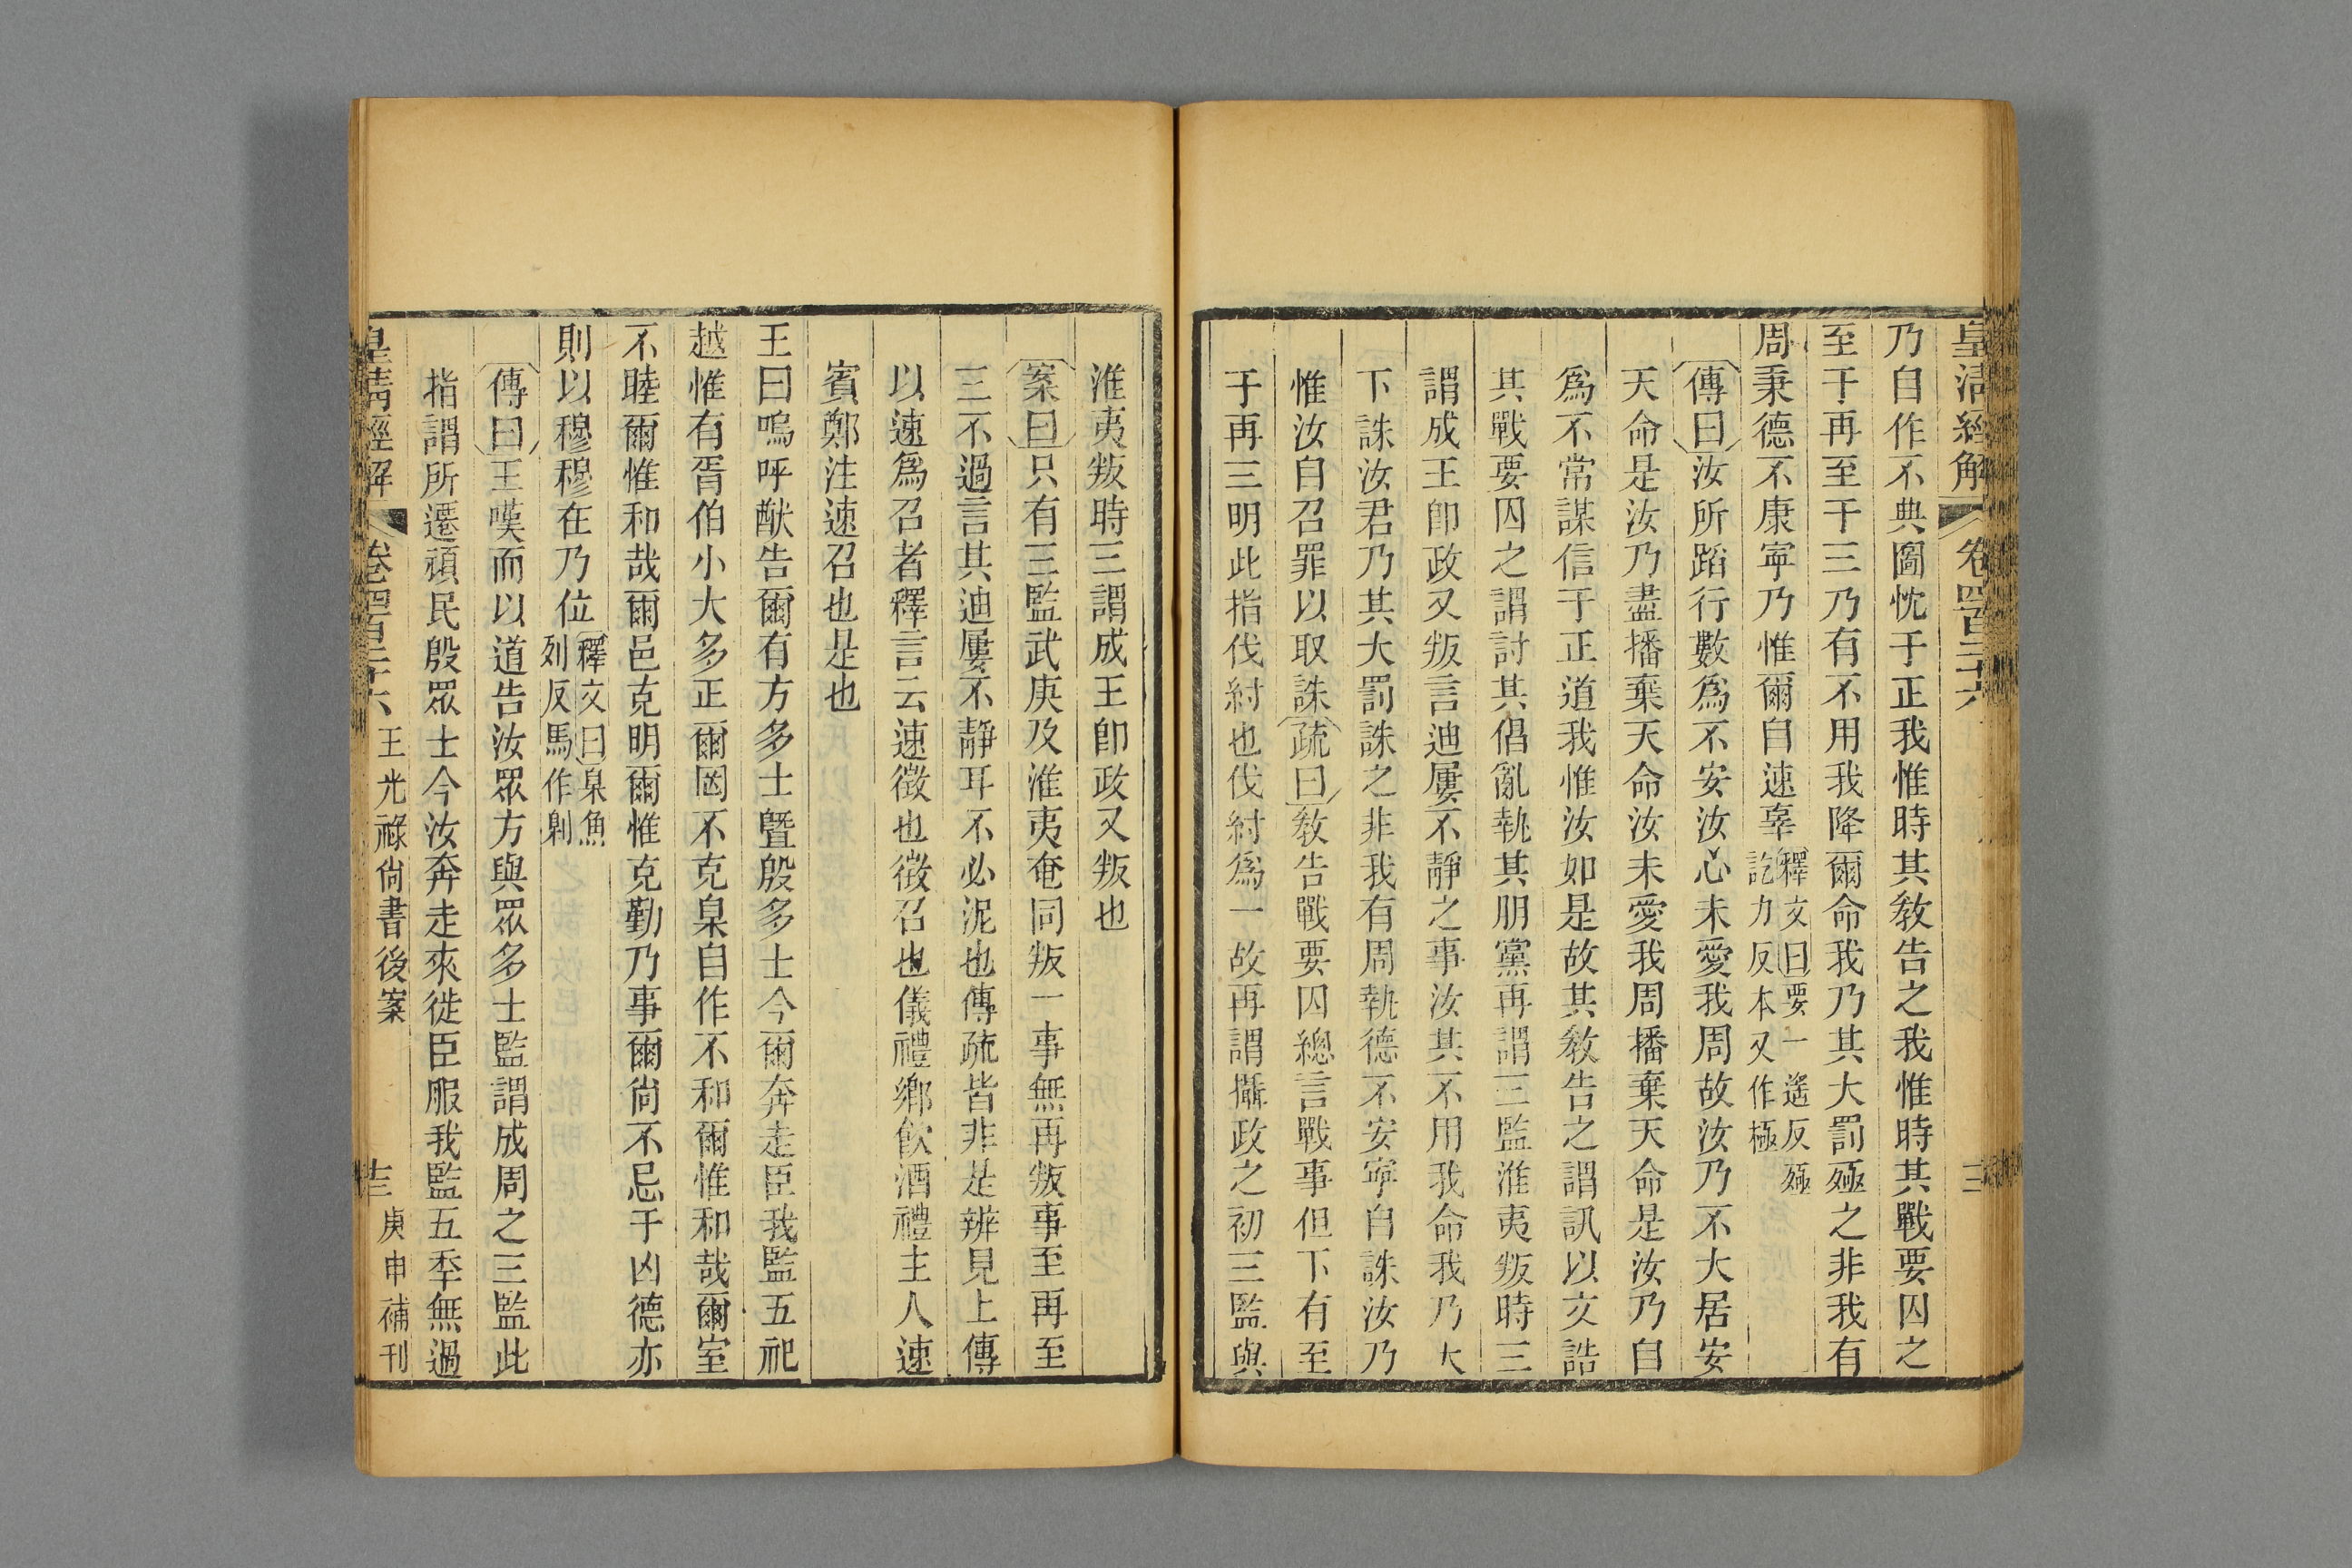 皇清經解 卷四百二十六 三
乃自作不典圖忱于正我惟時其教告之我惟時其戰要囚之
至于再至于三乃有不用我降爾命我乃其大罰殛之非我有
周秉德不康寧乃惟爾自速辜釋文曰要一遙反殛
訖力反本又作極
傳曰汝所蹈行數爲不安汝心未愛我周故汝乃不大居安
天命是汝乃盡播棄天命汝未愛我周播棄天命是汝乃自
爲不常謀信于正道我惟汝如是故其教告之謂訊以文誥
其戰要囚之謂討其倡亂執其朋黨再謂三監淮夷叛時三
謂成王卽政又叛言迪屢不靜之事汝其不用我命我乃大
下誅汝君乃其大罰誅之非我有周執德不安寧自誅汝乃
惟汝自召罪以取誅疏曰教告戰要囚總言戰事但下有至
于再三明此指伐紂也伐紂爲一故再謂攝政之初三監與
淮夷叛時三謂成王卽政又叛也
案曰只有三監武庚及淮夷奄同叛一事無再叛事至再至
三不過言其迪屢不靜耳不必泥也傳疏皆非是辨見上傳
以速爲召者釋言云速徵也徵召也儀禮鄕飮酒禮主人速
賓鄭注速召也是也
王曰嗚呼猷告爾有方多士曁殷多士今爾奔走臣我監五祀
越惟有胥伯小大多正爾罔不克臬自作不和爾惟和哉爾室
不睦爾惟和哉爾邑克明爾惟克勤乃事爾尙不忌于凶德亦
則以穆穆在乃位釋文曰臬魚
列反馬作劓
傳曰王嘆而以道告汝眾方與眾多士監謂成周之三監此
指謂所遷頑民殷眾士今汝奔走來徙臣服我監五年無過
皇清經解 卷四百二十六 王光祿尙書後案 十三 庚申補刊